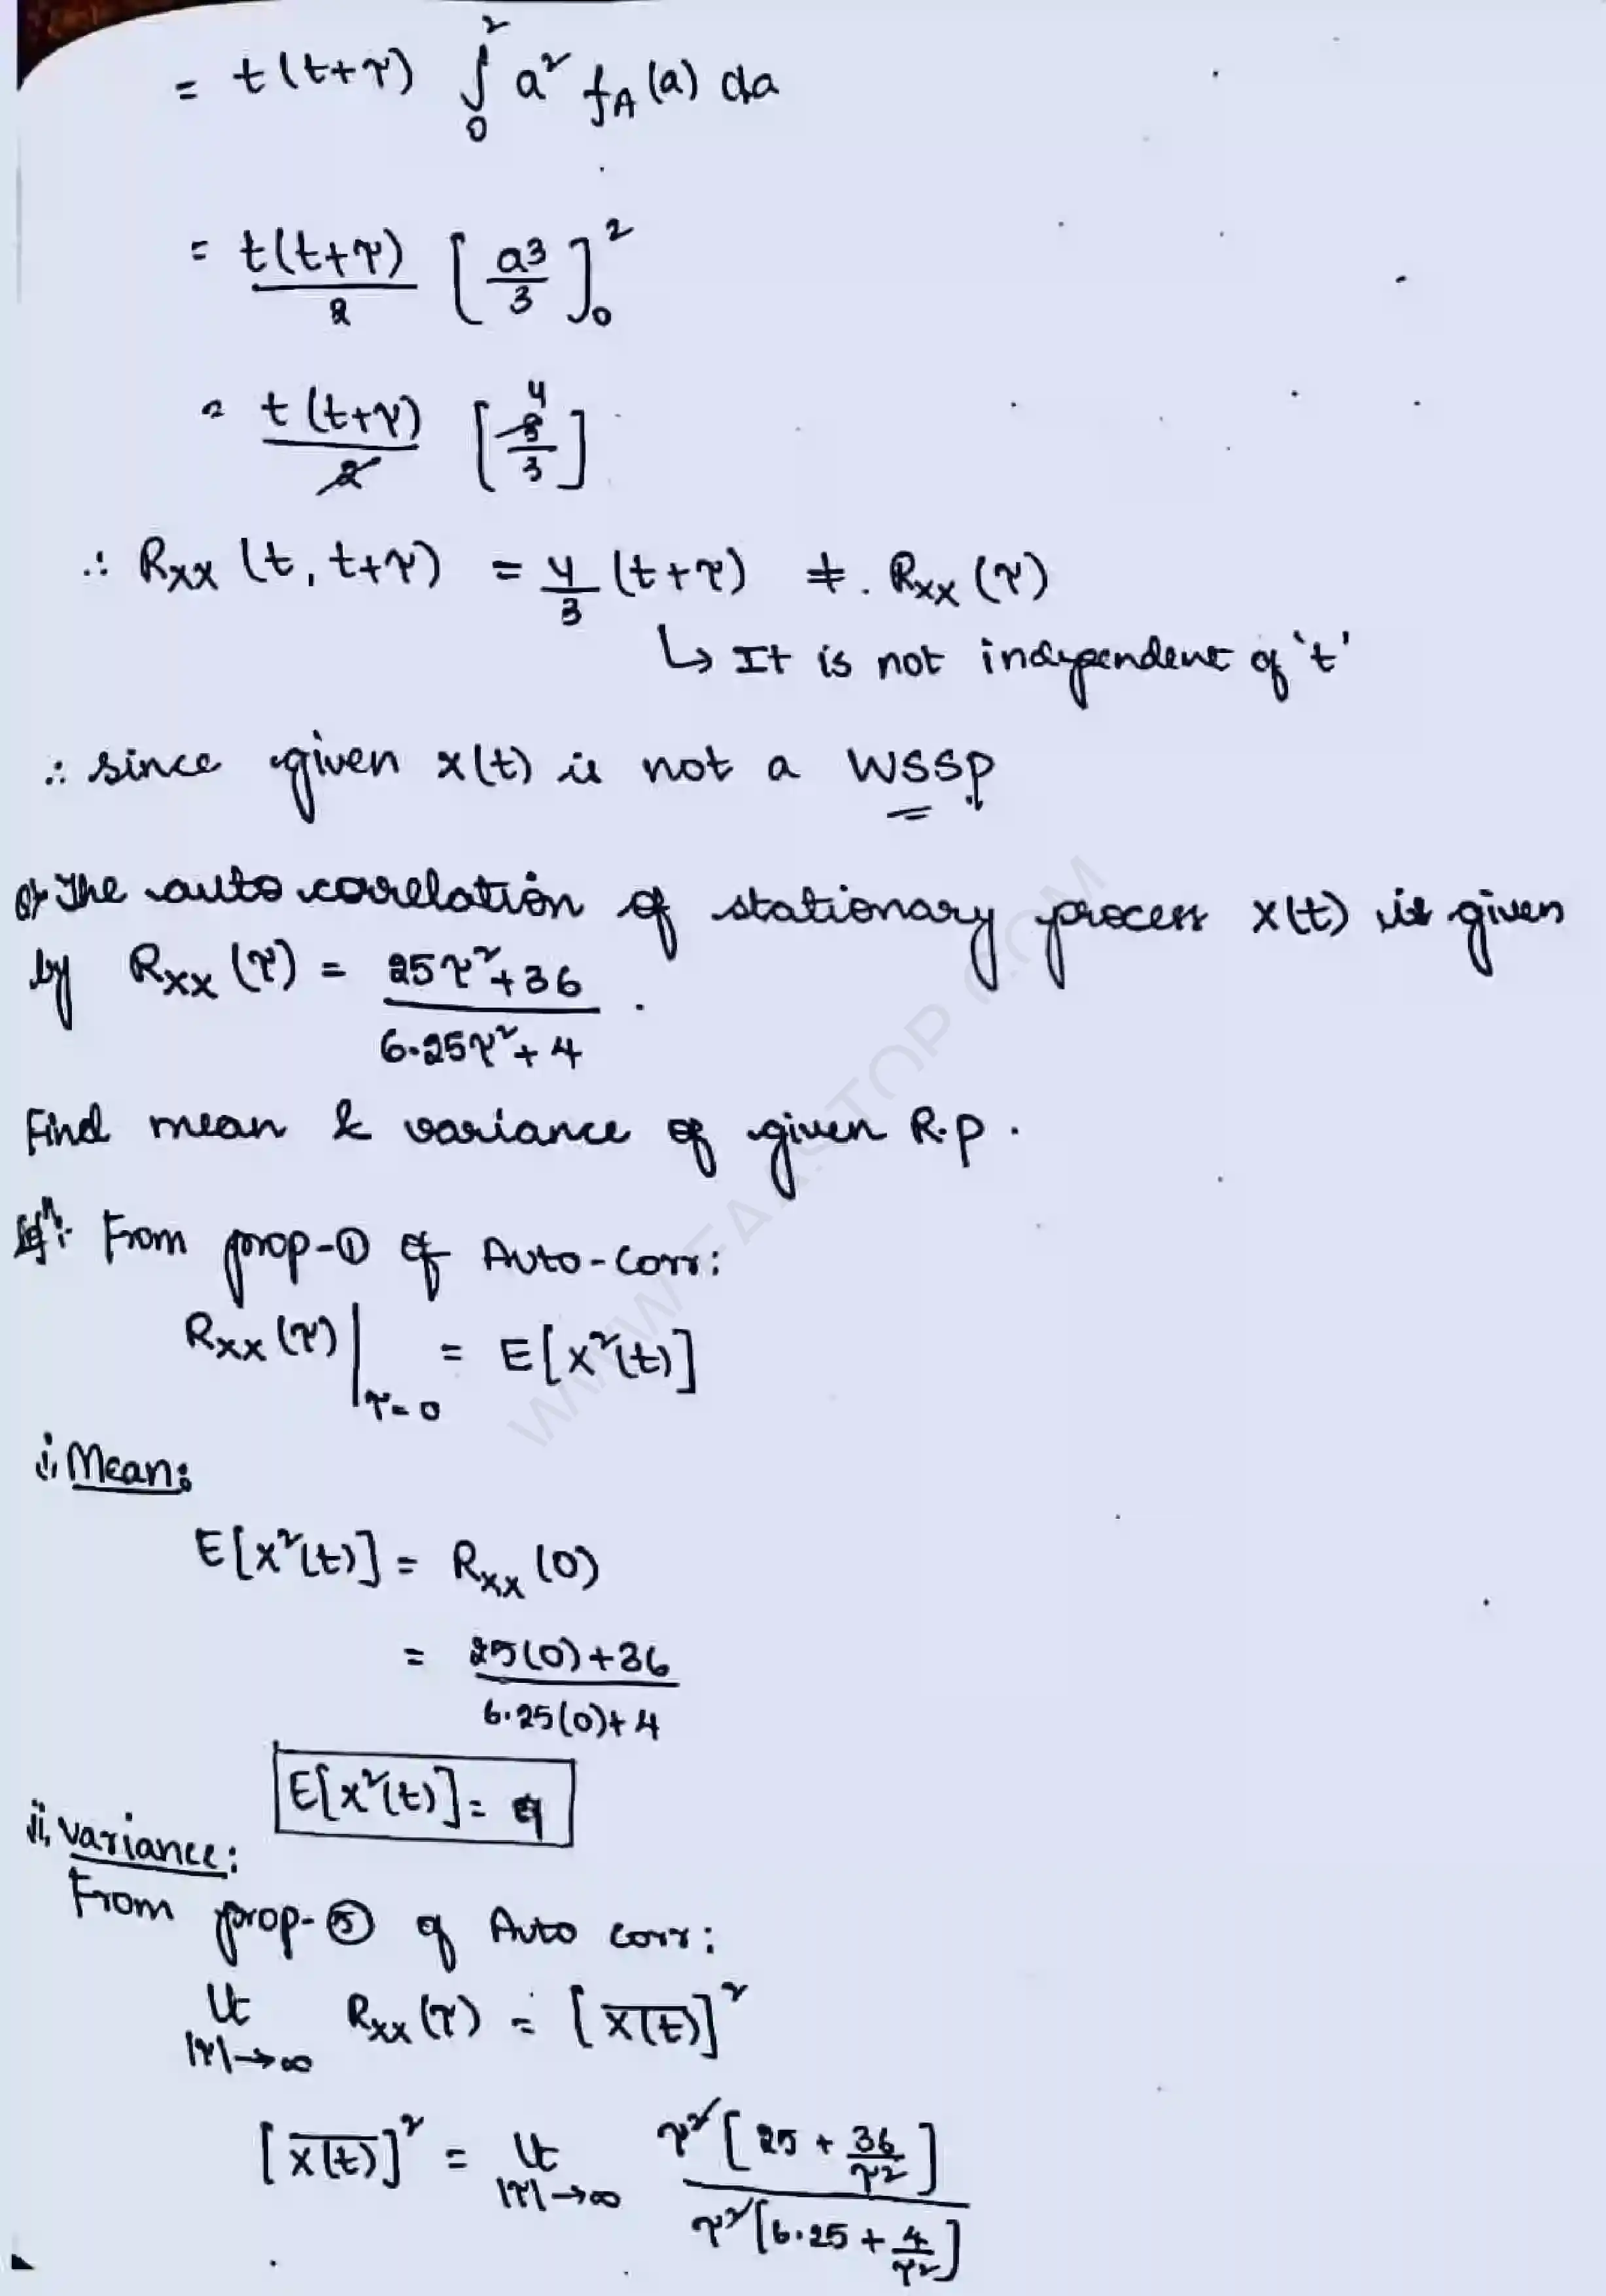 = t(t+τ) ∫₀² a² f_A(a) da
= t(t+τ)/2 [a³/3]₀²
= t(t+τ)/2 [8/3] 4
∴ R_XX (t, t+τ) = 4/3 (t+τ) ≠ . R_XX (τ)
↳ It is not independent of 't'
∴ since given x(t) is not a WSSP
Q) The auto correlation of stationary process x(t) is given
by R_XX (τ) = (25τ²+36)/(6.25τ²+4) .
Find mean & variance of given R.P .
Solⁿ: From prop-① of Auto-Corr:
R_XX (τ)|τ=0 = E[X²(t)]
i, Mean:
E[X²(t)] = R_XX (0)
= (25(0)+36)/(6.25(0)+4)
E[X²(t)] = 9
ii, Variance:
From prop-⑤ of Auto corr:
Lt |τ|→∞ R_XX (τ) = [X̅(̅t̅)̅]²
[X̅(̅t̅)̅]² = Lt |τ|→∞ τ²[25 + 36/τ²] / τ²[6.25 + 4/τ²]